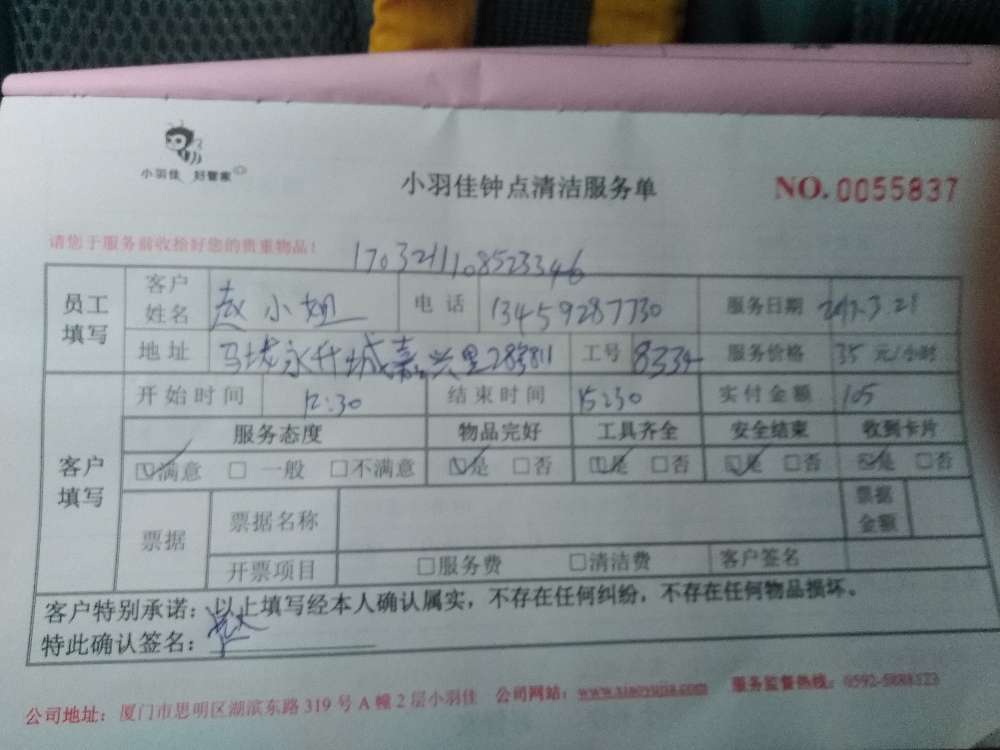 小羽佳 好管家
小羽佳钟点清洁服务单
NO.0055837
请您于服务前收拾好您的贵重物品！
170321108523346
员工填写 客户姓名 赵小姐 电话 13459287730 服务日期 2017.3.21
地址 马垅永升城嘉兴里283811 工号 8334 服务价格 35 元/小时
客户填写 开始时间 12:30 结束时间 15:30 实付金额 105
服务态度 物品完好 工具齐全 安全结束 收到卡片
☑满意 □一般 □不满意 ☑是 □否 ☑是 □否 ☑是 □否 ☑是 □否
票据 票据名称 票据金额
开票项目 □服务费 □清洁费 客户签名
客户特别承诺：以上填写经本人确认属实，不存在任何纠纷，不存在任何物品损坏。
特此确认签名：
公司地址：厦门市思明区湖滨东路319号A幢2层小羽佳 公司网站：www.xiaoyujia.com 服务监督热线：0592-5888323